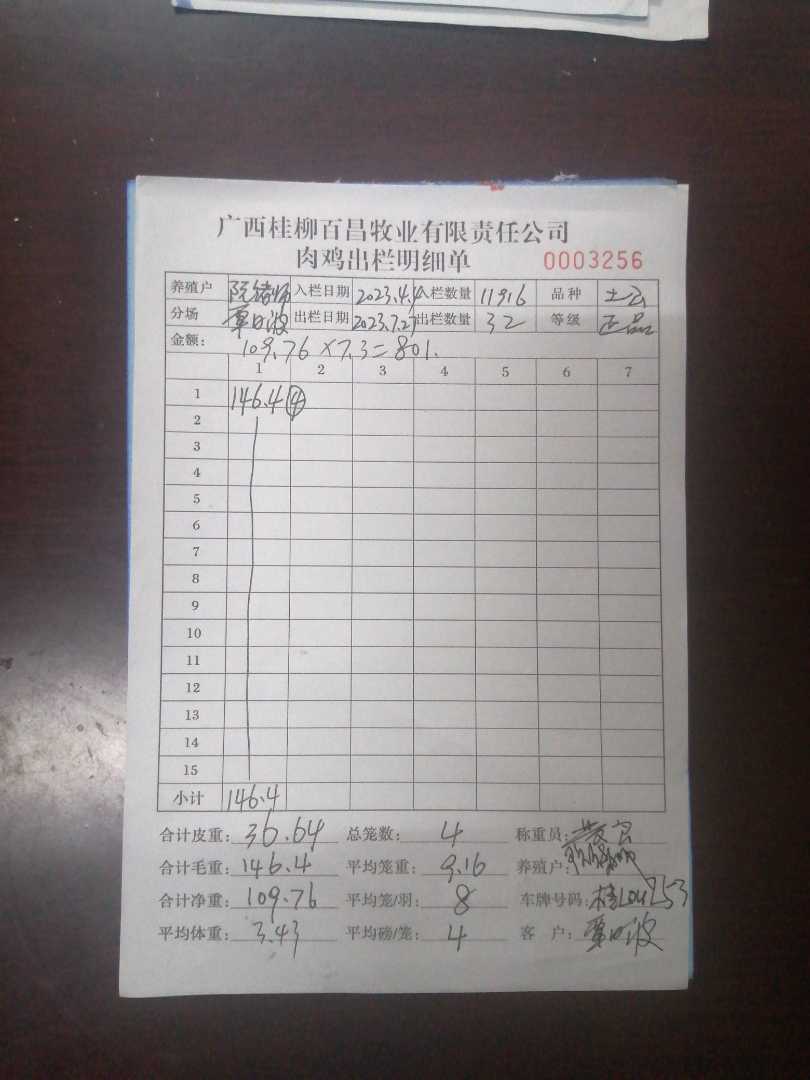 广西桂柳百昌牧业有限责任公司
肉鸡出栏明细单 0003256
养殖户 阮绪师 入栏日期 2023.4. 入栏数量 11916 品种 土云
分场 覃日波 出栏日期 2023.7.27 出栏数量 32 等级 正品
金额: 109.76×7.3=801.
1 2 3 4 5 6 7
1 146.4 ④
2
3
4
5
6
7
8
9
10
11
12
13
14
15
小计 146.4
合计皮重: 36.64 总笼数: 4 称重员:
合计毛重: 146.4 平均笼重: 9.16 养殖户:
合计净重: 109.76 平均笼/羽: 8 车牌号码:
平均体重: 3.43 平均磅/笼: 4 客 户: 覃日波